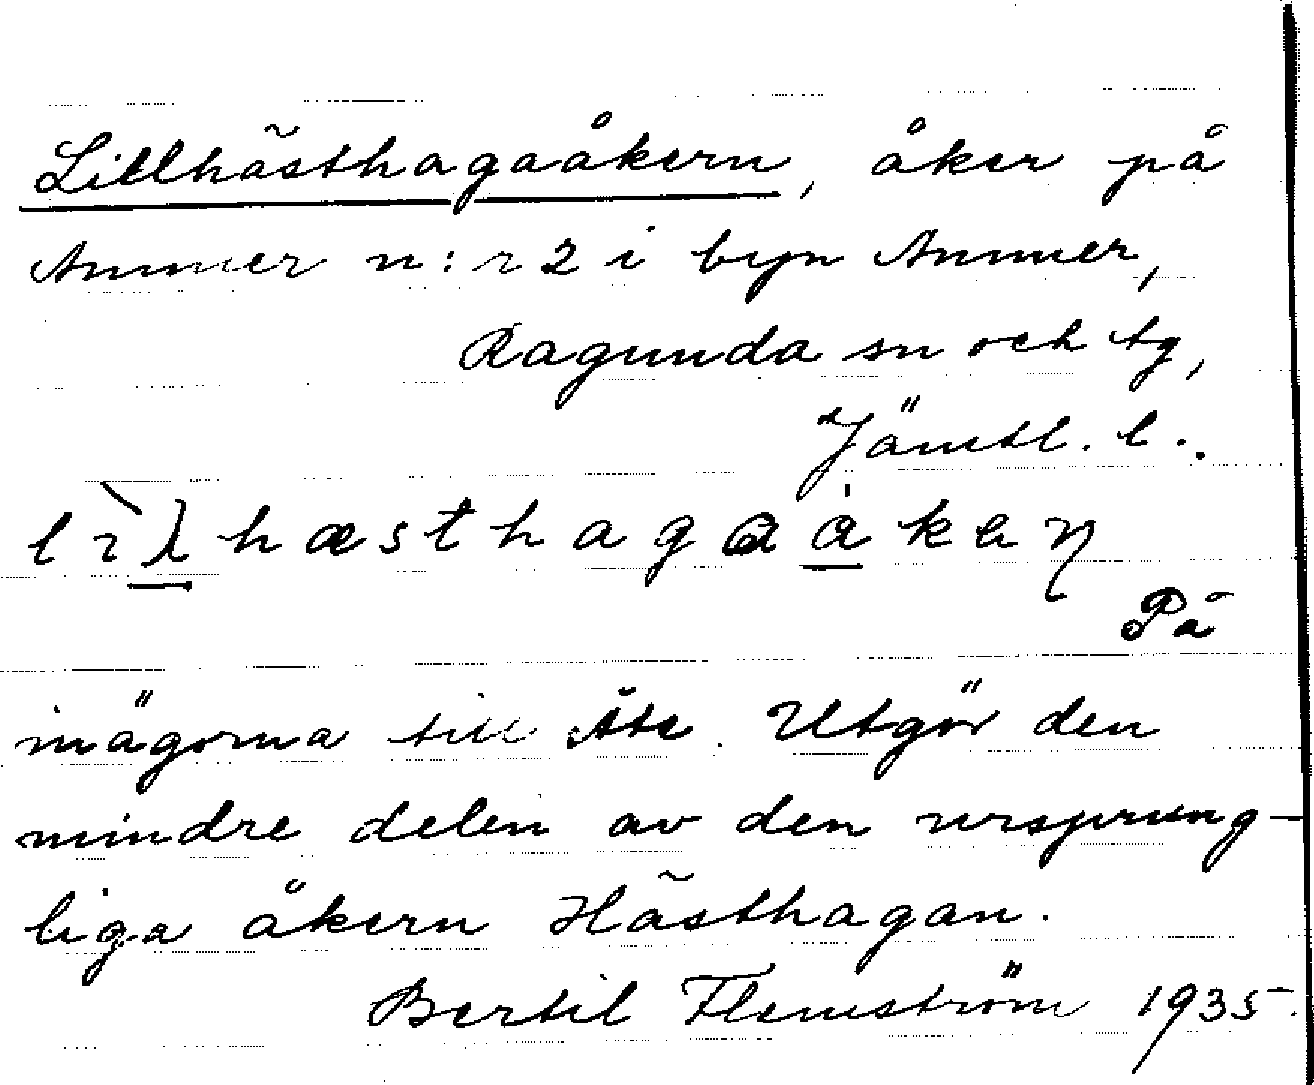 Lillhästhagaåkern, åker på
Ammer n:r 2 i byn Ammer,
Ragunda sn och tg,
Jämtl. l..
hæsthaga
På
inägorna till Åte. Utgör den
mindre delen av den ursprung-
liga åkern Hästhagan.
Bertil Flemström 1935.